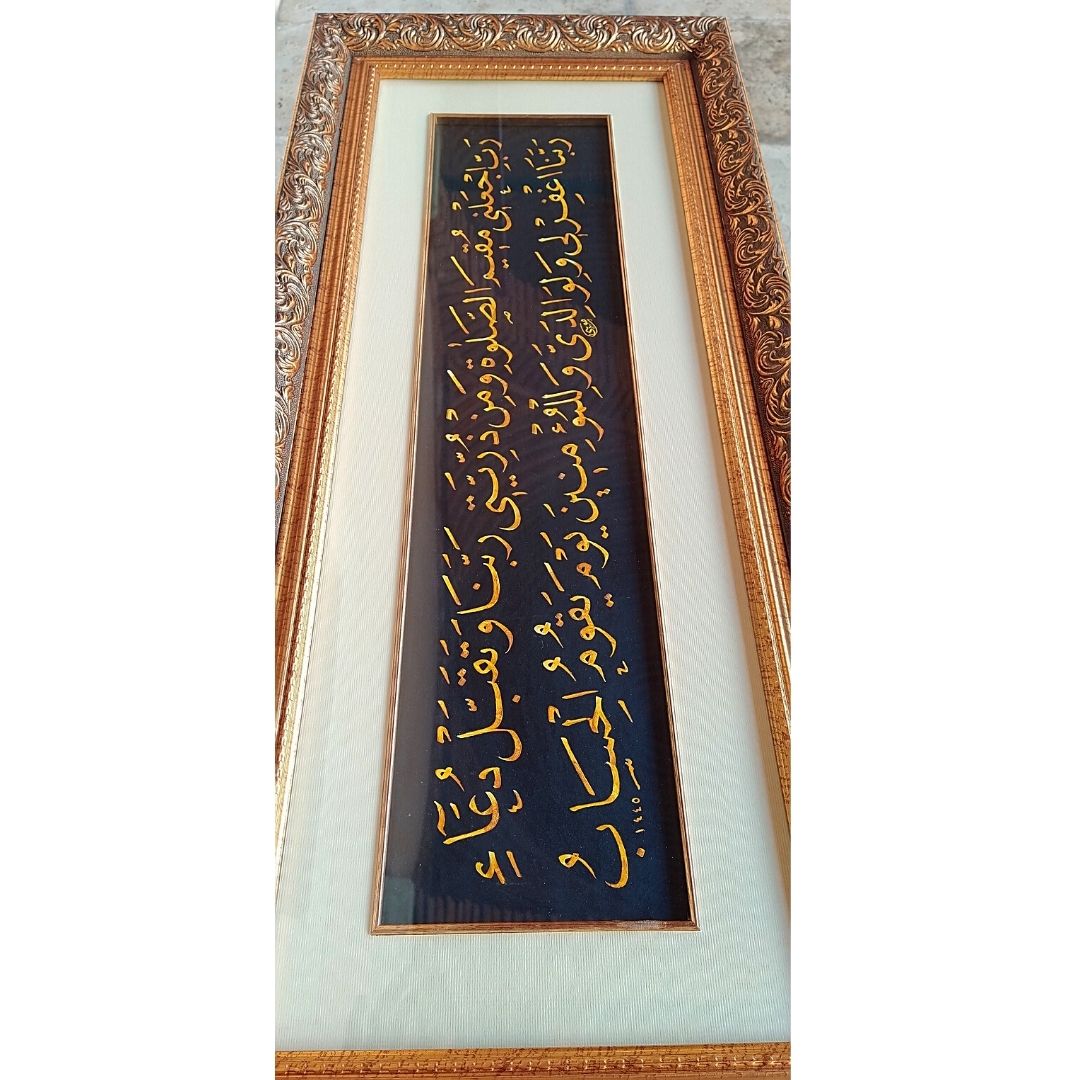 رَبِّ اجْعَلْنِي مُقِيمَ الصَّلٰوةِ وَمِنْ ذُرِّيَّتِي رَبَّنَا وَتَقَبَّلْ دُعَاءِ
رَبَّنَا اغْفِرْ لِي وَلِوَالِدَيَّ وَلِلْمُؤْمِنِينَ يَوْمَ يَقُومُ الْحِسَابُ
١٤٤٥